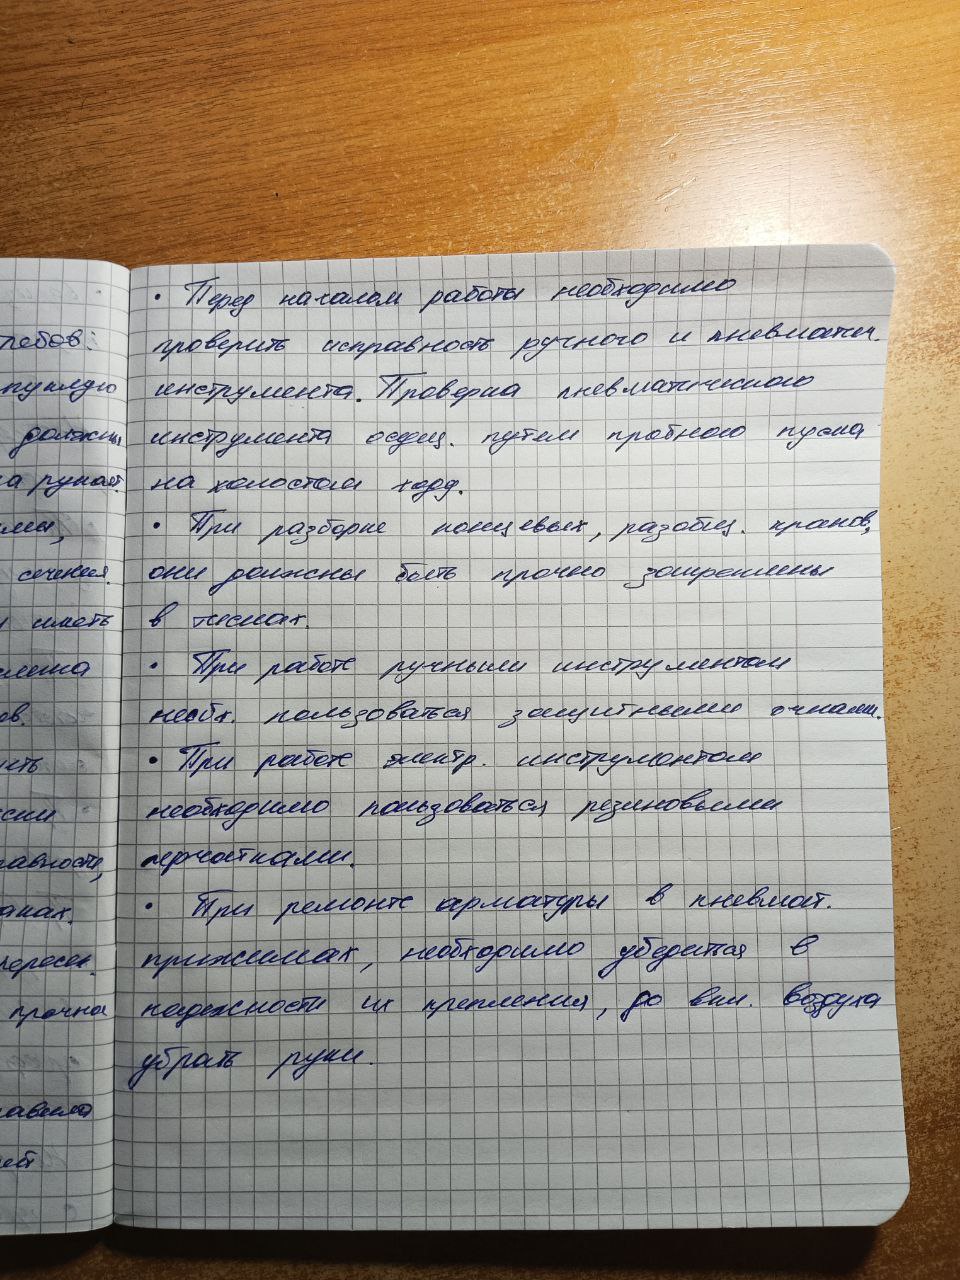 требов:
пуклую
должны
на рукоят.
ами,
сечения.
иметь
ов.
ить
ски
равность,
пересек.
прочно
равила
• Перед началом работы необходимо
проверить исправность ручного и пневматич.
инструмента. Проверка пневматического
инструмента осущ. путем пробного пуска
на холостом ходу.
• При разборке концевых, разобщ. кранов,
они должны быть прочно закреплены
в тисках.
• При работе ручными инструментом
необх. пользоваться защитными очками.
• При работе электр. инструментом
необходимо пользоваться резиновыми
перчатками.
• При ремонте арматуры в пневмат.
прижимах, необходимо убедиться в
надежности их крепления, до вкл. воздуха
убрать руки.